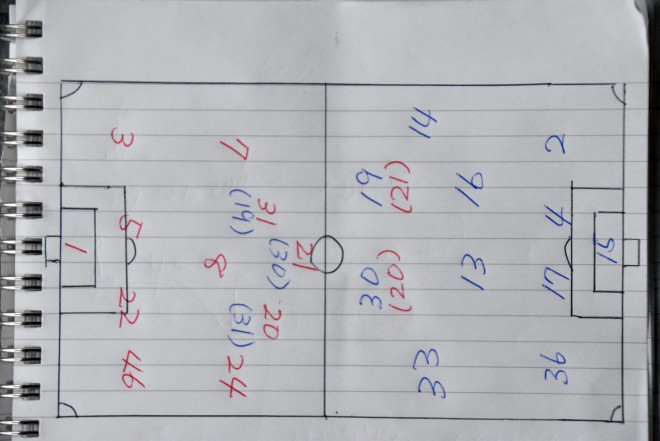 1
3
5
22
46
7
8
24
31
(19)
20
(31)
21
(30)
19
(21)
30
(20)
14
33
16
13
2
4
17
36
15